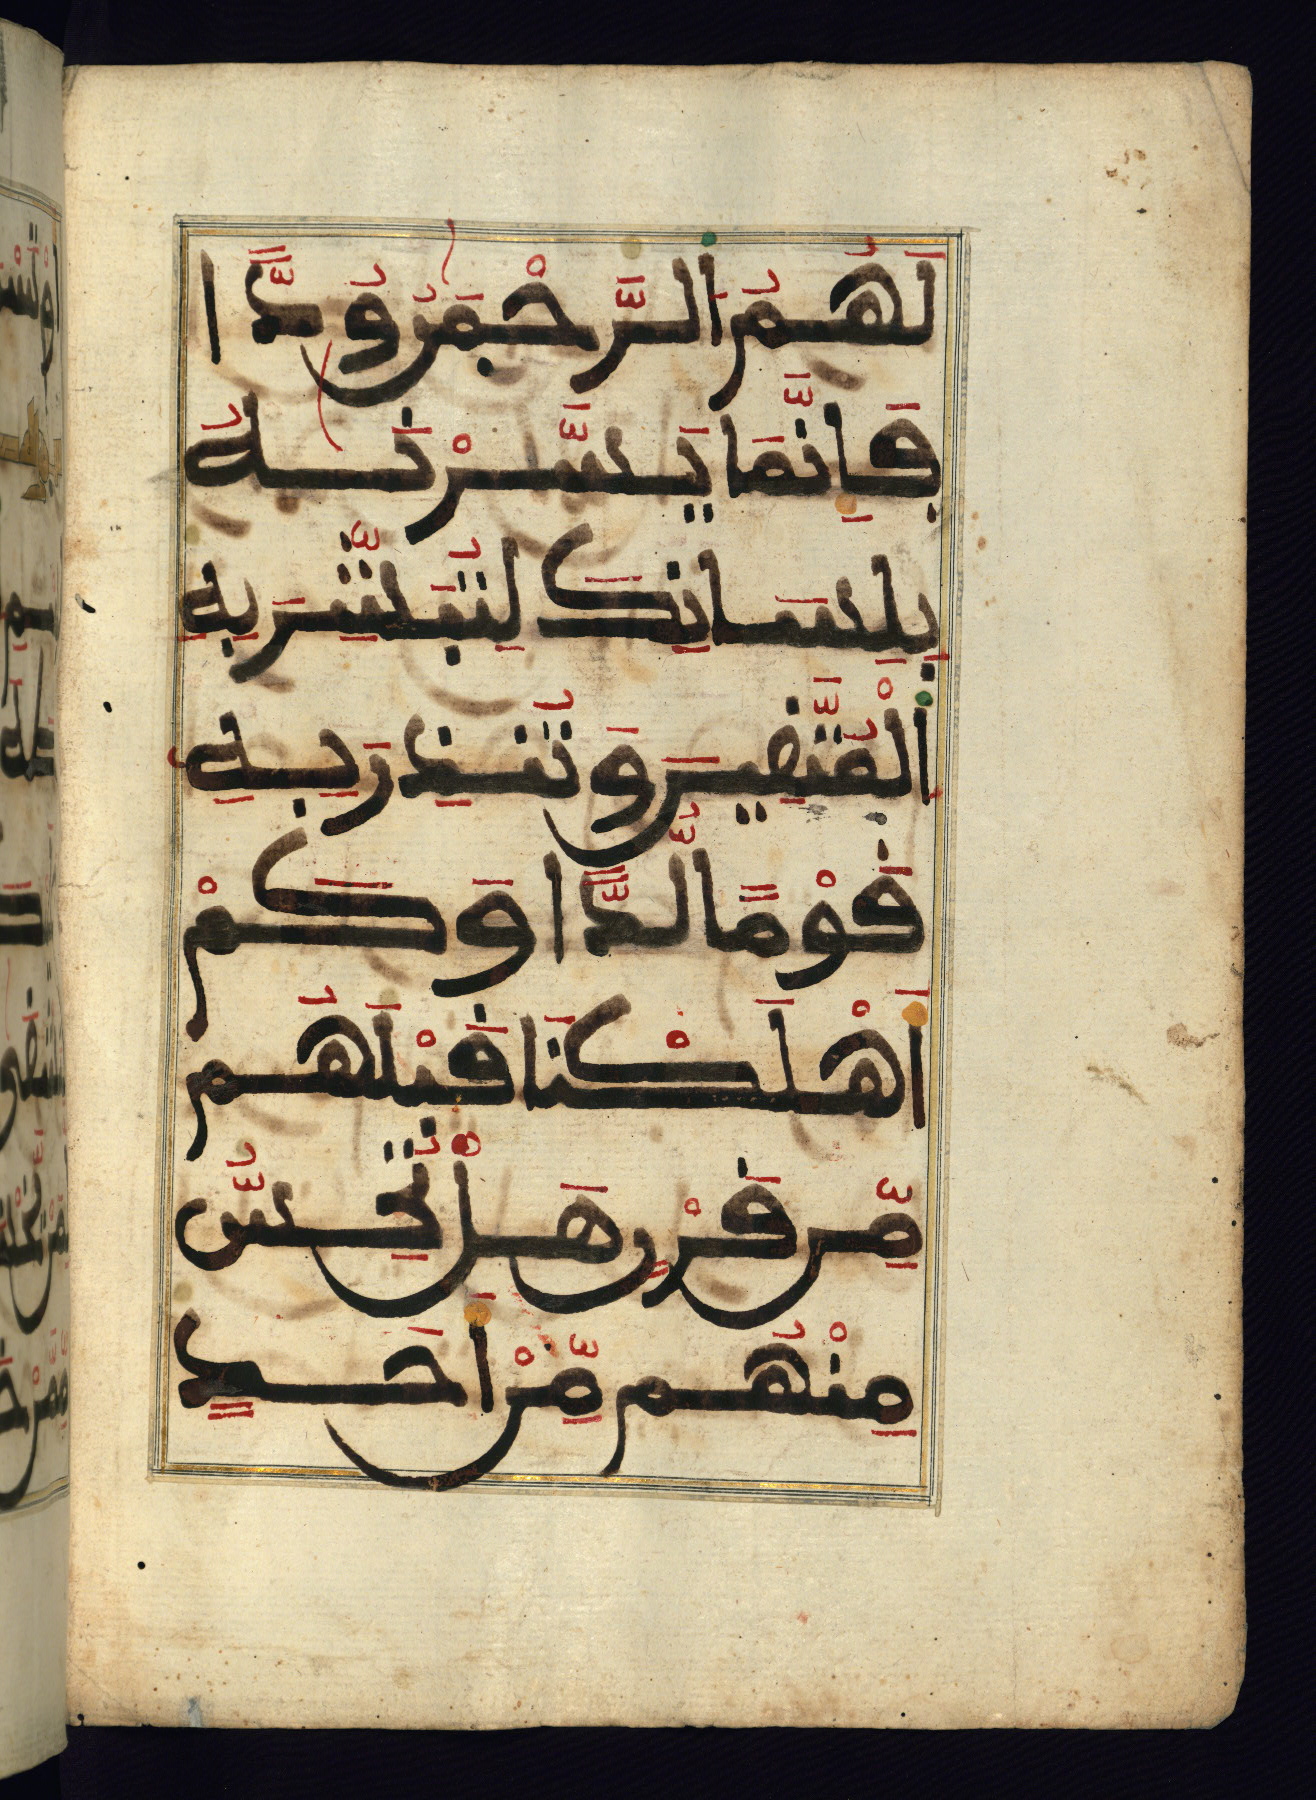 لَهُمُ الرَّحْمَٰنُ وُدًّا
فَإِنَّمَا يَسَّرْنَٰهُ
بِلِسَانِكَ لِتُبَشِّرَ بِهِ
الْمُتَّقِينَ وَتُنذِرَ بِهِ
قَوْمًا لُّدًّا وَكَمْ
أَهْلَكْنَا قَبْلَهُم
مِّن قَرْنٍ هَلْ تُحِسُّ
مِنْهُم مِّنْ أَحَدٍ